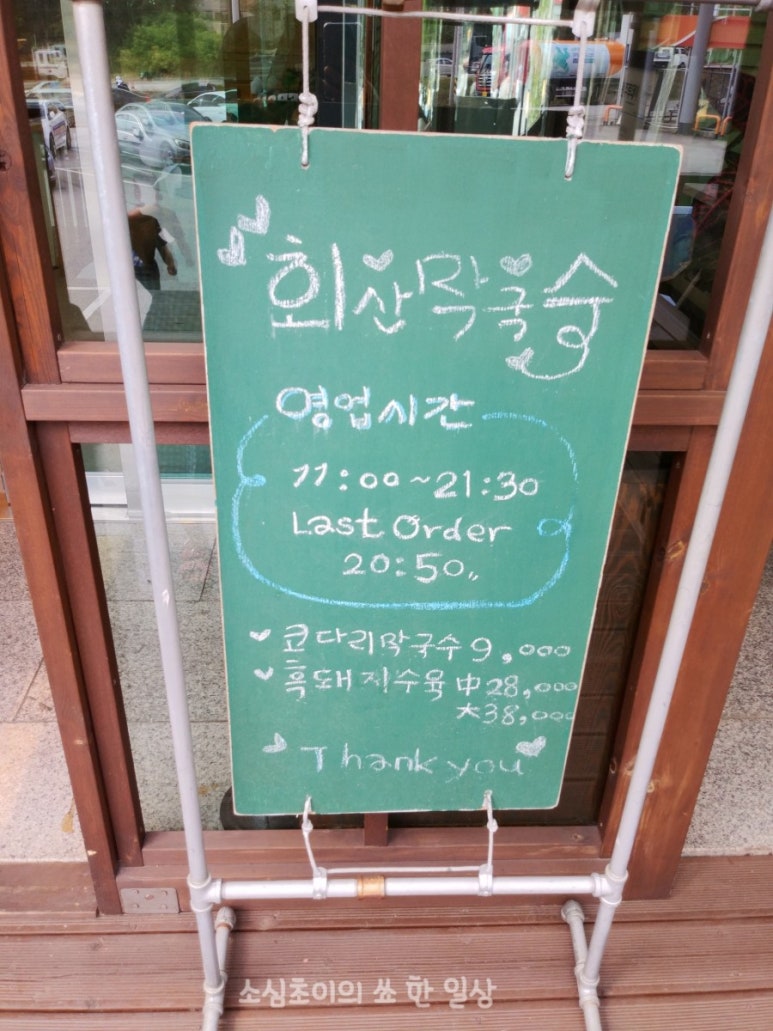 회산막국수
영업시간
11:00~21:30
Last Order
20:50
코다리막국수 9,000
흑돼지수육 中 28,000
大 38,000
Thank you
소심초이의 쏘 한 일상